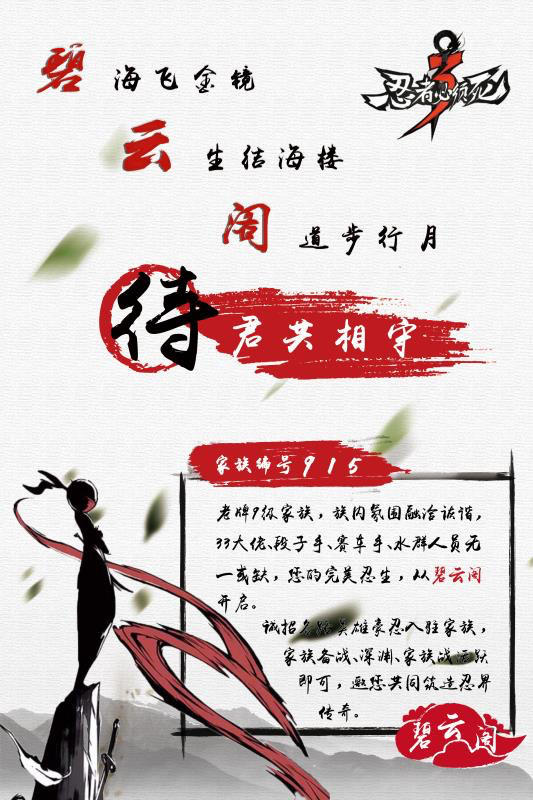 忍者必须死
3
碧海飞金镜
云生结海楼
阁道步行月
待君共相守
家族编号915
老牌9级家族，族内氛围融洽诙谐，
33大佬、段子手、赛车手、水群人员无
一或缺，您的完美忍生，从碧云阁
开启。
诚招各路英雄豪忍入驻家族，
家族备战、深渊、家族战活跃
即可，邀您共同筑造忍界
传奇。
碧云阁